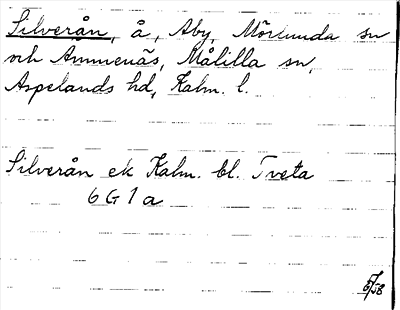 Silverån, å, Åby, Mörlunda sn
och Ämmenäs, Målilla sn,
Aspelands hd, Kalm. l.
Silverån ek Kalm. bl. Tveta
6 G 1 a